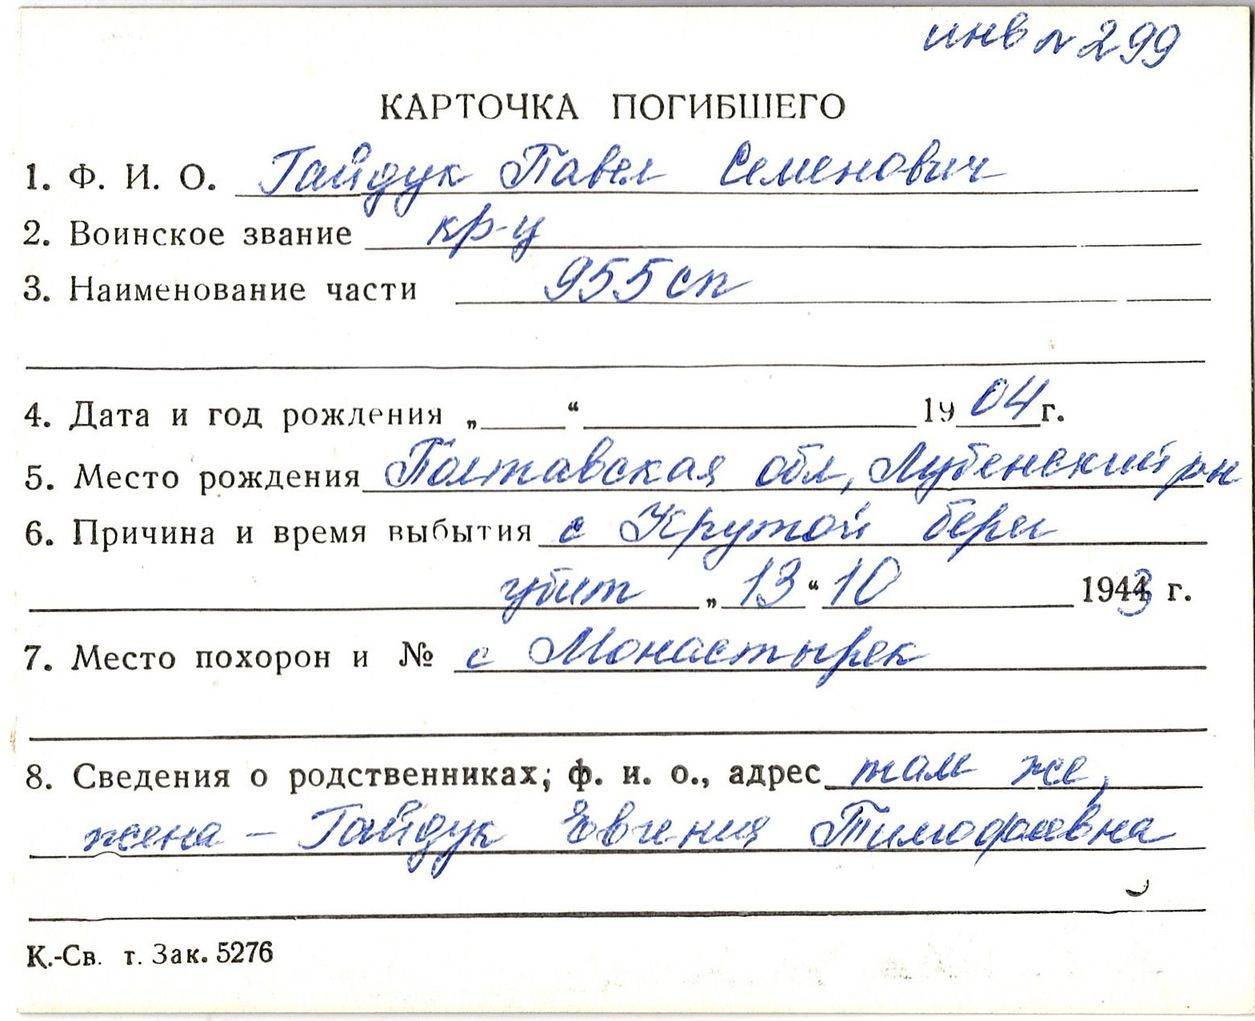 инв № 299
КАРТОЧКА ПОГИБШЕГО
1. Ф. И. О. Гайдук Павел Семенович
2. Воинское звание кр-ц
3. Наименование части 955 сп
4. Дата и год рождения „ “ 1904 г.
5. Место рождения Полтавская обл, Лубенский рн
6. Причина и время выбытия с Крутой берег
убит „13“ 10 1943 г.
7. Место похорон и № с Монастырек
8. Сведения о родственниках; ф. и. о., адрес там же,
жена – Гайдук Евгения Тимофаевна
К.-Св. т. Зак. 5276